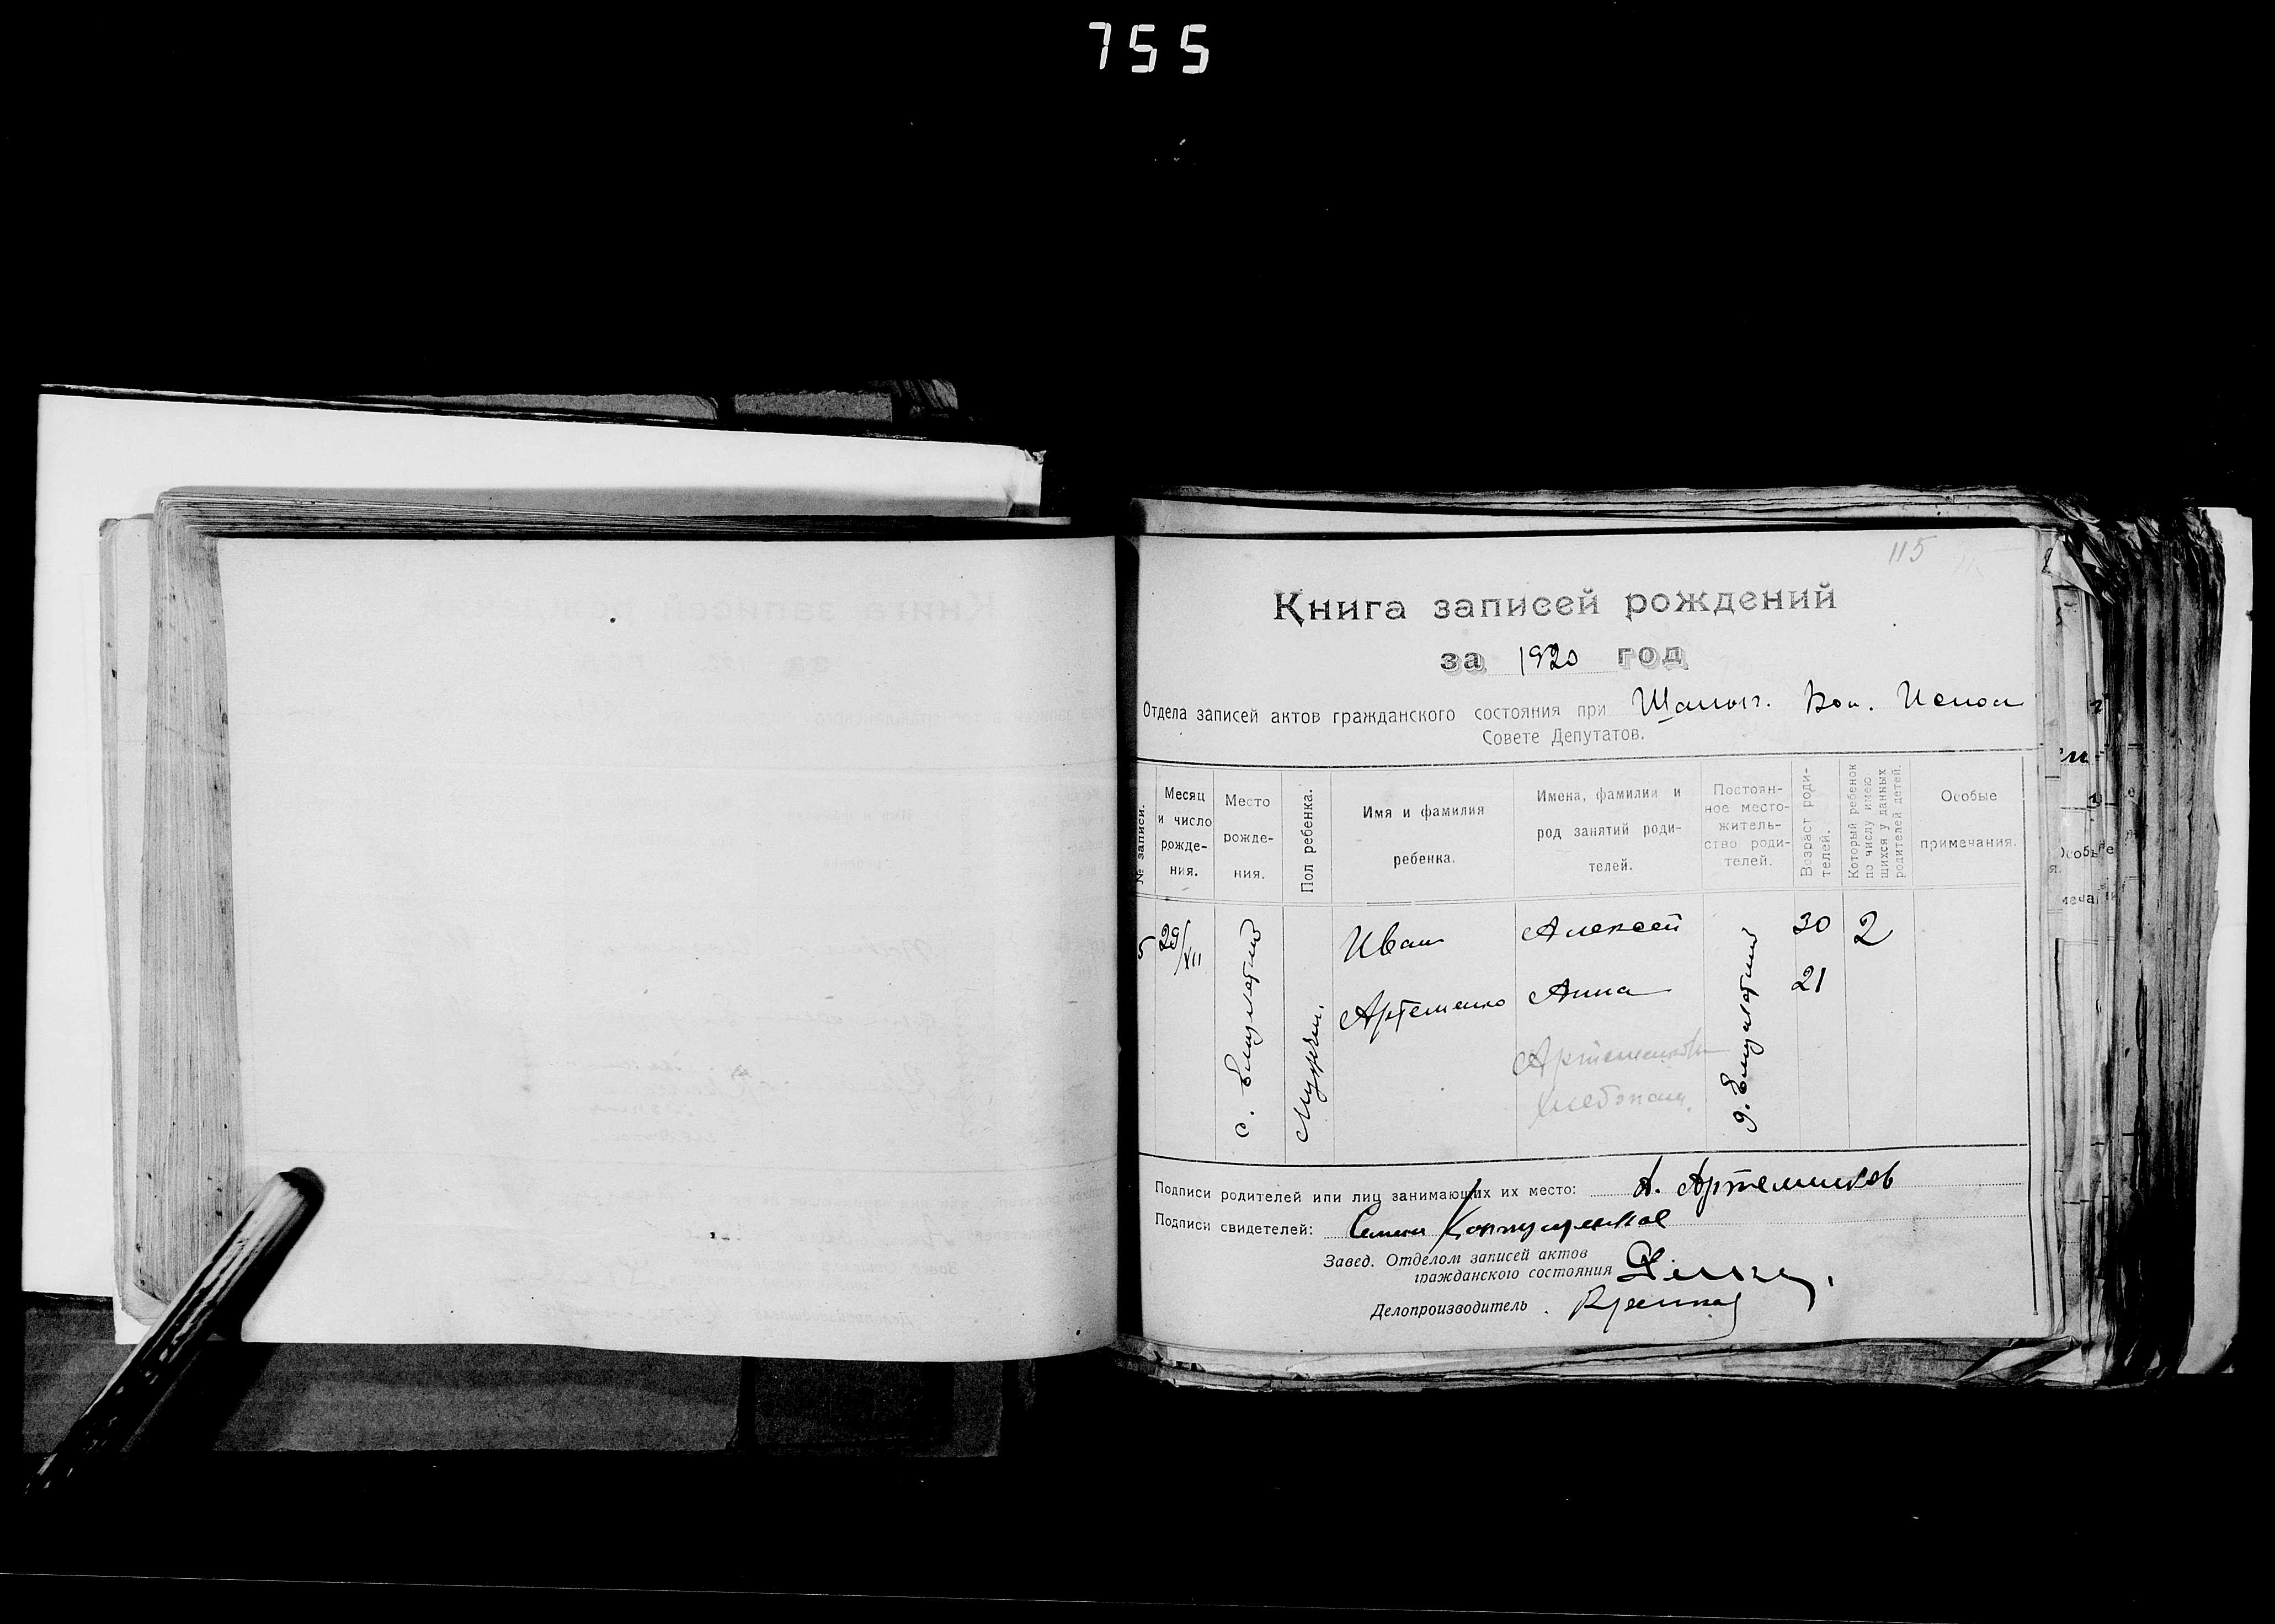 755
115
Книга записей рождений
за 1920 год
Отдела записей актов гражданского состояния при Шамыг. Вол. Испол
Совете Депутатов.
№ записи.
Месяц и число рожде- ния.
Место рожде- ния.
Пол ребенка.
Имя и фамилия ребенка.
Имена, фамилии и род занятий роди- телей.
Постоян- ное место- житель- ство роди- телей.
Возраст роди- телей.
Который ребенок по числу имею щихся у данных родителей детей.
Особые примечания.
5
29/XII
с.
Мужск.
Иван
Артеменко
Алексей
Анна
Артеменковы
Хлебопаш.
д.
30
21
2
Подписи родителей или лиц занимающих их место: А. Артемиков
Подписи свидетелей: Семен
Завед. Отделом записей актов
гражданского состояния
Делопроизводитель